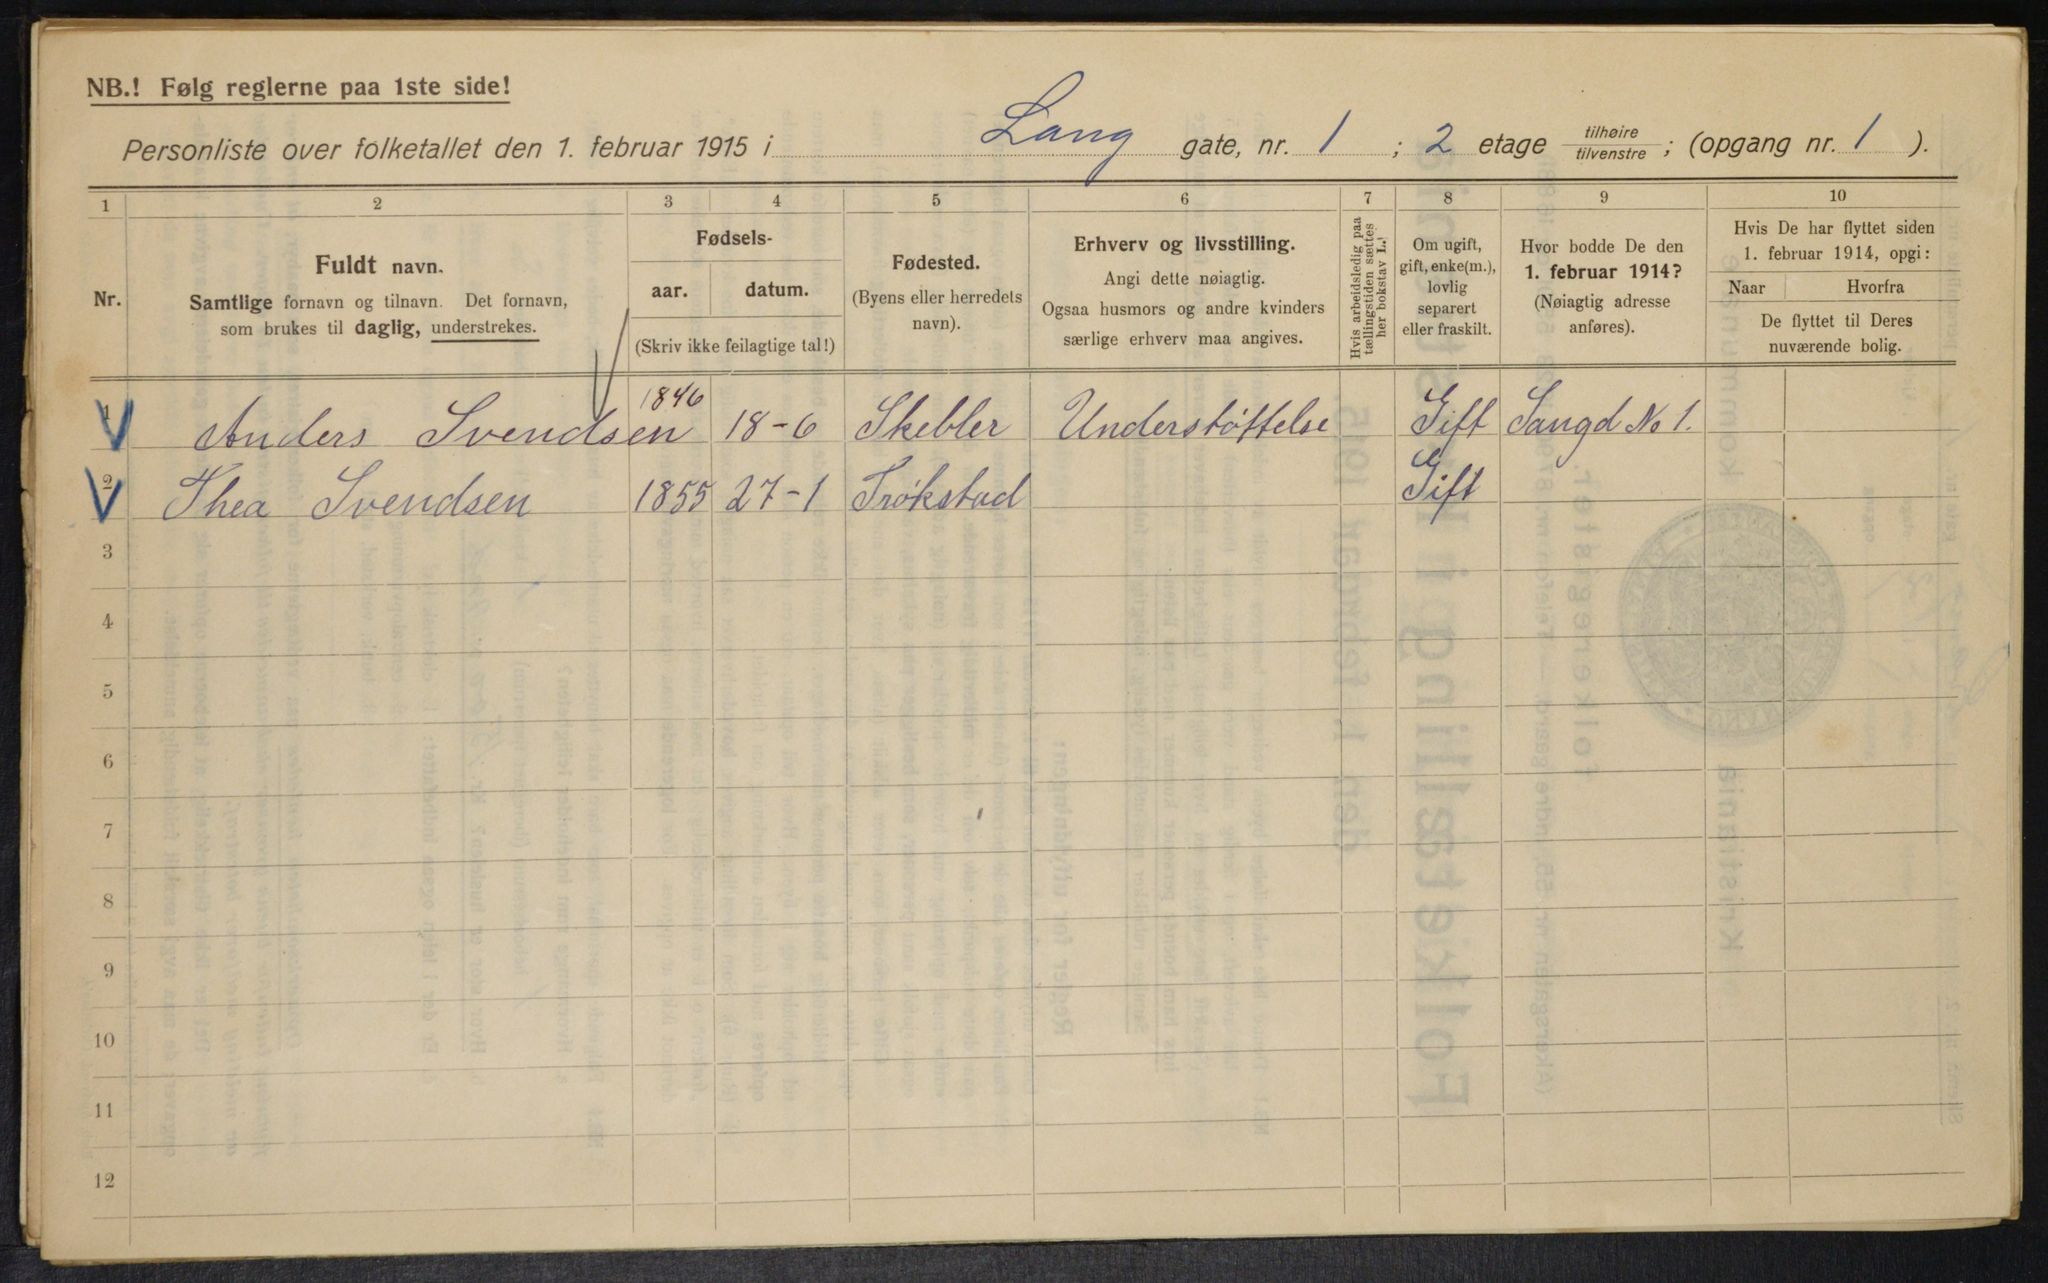 NB.! Følg reglerne paa 1ste side!
Personliste over folketallet den 1. februar 1915 i Lang gate, nr. 1 ; 2 etage tilhøire / tilvenstre ; (opgang nr. 1 ).
1 2 3 4 5 6 7 8 9 10
Nr.
Fuldt navn.
Samtlige fornavn og tilnavn. Det fornavn,
som brukes til daglig, understrekes.
Fødsels-
aar. datum.
(Skriv ikke feilagtige tal!)
Fødested.
(Byens eller herredets
navn).
Erhverv og livsstilling.
Angi dette nøiagtig.
Ogsaa husmors og andre kvinders
særlige erhverv maa angives.
Hvis arbeidsledig paa
tællingstiden sættes
her bokstav L.!
Om ugift,
gift, enke(m.),
lovlig
separert
eller fraskilt.
Hvor bodde De den
1. februar 1914?
(Nøiagtig adresse
anføres).
Hvis De har flyttet siden
1. februar 1914, opgi:
Naar Hvorfra
De flyttet til Deres
nuværende bolig.
1 Anders Svendsen 1846 18-6 Skebler Understøttelse Gift Langd No 1.
2 Thea Svendsen 1855 27-1 Trøkstad Gift
3
4
5
6
7
8
9
10
11
12